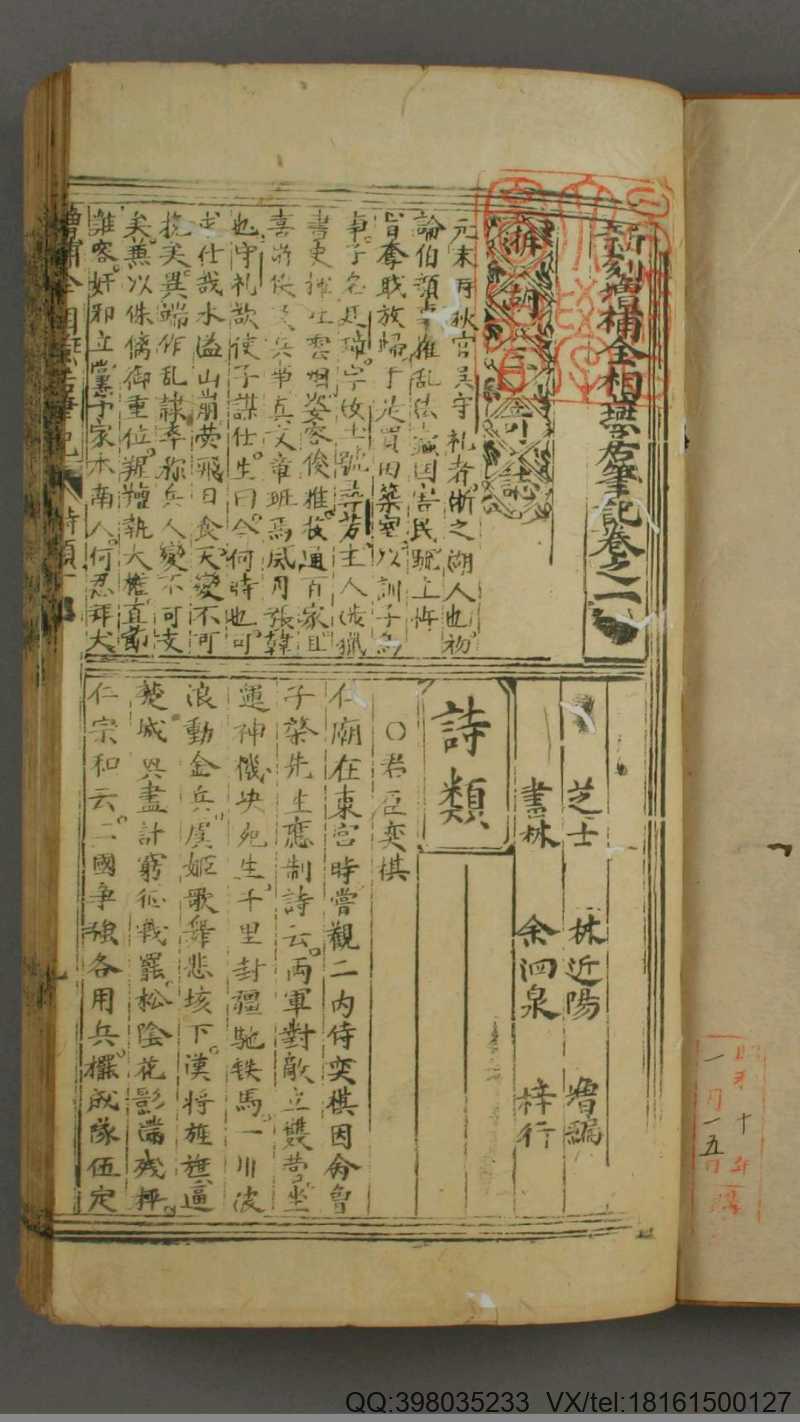 新刻增補全相燕居筆記卷之一
擁爐
元末時秋官吳守礼者浙之湖人也初
論伯顏專推乱法
旨奪職放歸于是買田築室以訓子為
事子名廷璋字汝玉號尋芳主人涉獵
書史揮吐雲烟姿容俊雅技通百家且
喜孫兵弟真文章班馬風月張韓
也守礼欲使子謀仕生曰今何時也可
求仕哉水溢山崩熒飛日食天變不可
挽矣異端作乱隷卒称兵人變不可支
矣兼以侏儒御重位羶執大權直節
難容奸邪立黨予家本南人何忍拜犬
芝士 林近陽 增編
書林 余泗泉 梓行
詩類
○君臣奕棋
仁廟在東宮時嘗觀二内侍奕棋因命曾
子棨先生應制詩云兩軍對敵立雙營坐
運神機决死生千里封疆馳铁馬一川波
浪動金兵虞姬歌舞悲垓下漢将旌旗逼
楚城興盡計窮征戰罷松陰花影滿殘枰
仁宗和云二國爭強各用兵擺成隊伍定
昭和十年
一月一五日
QQ:398035233 VX/tel:18161500127